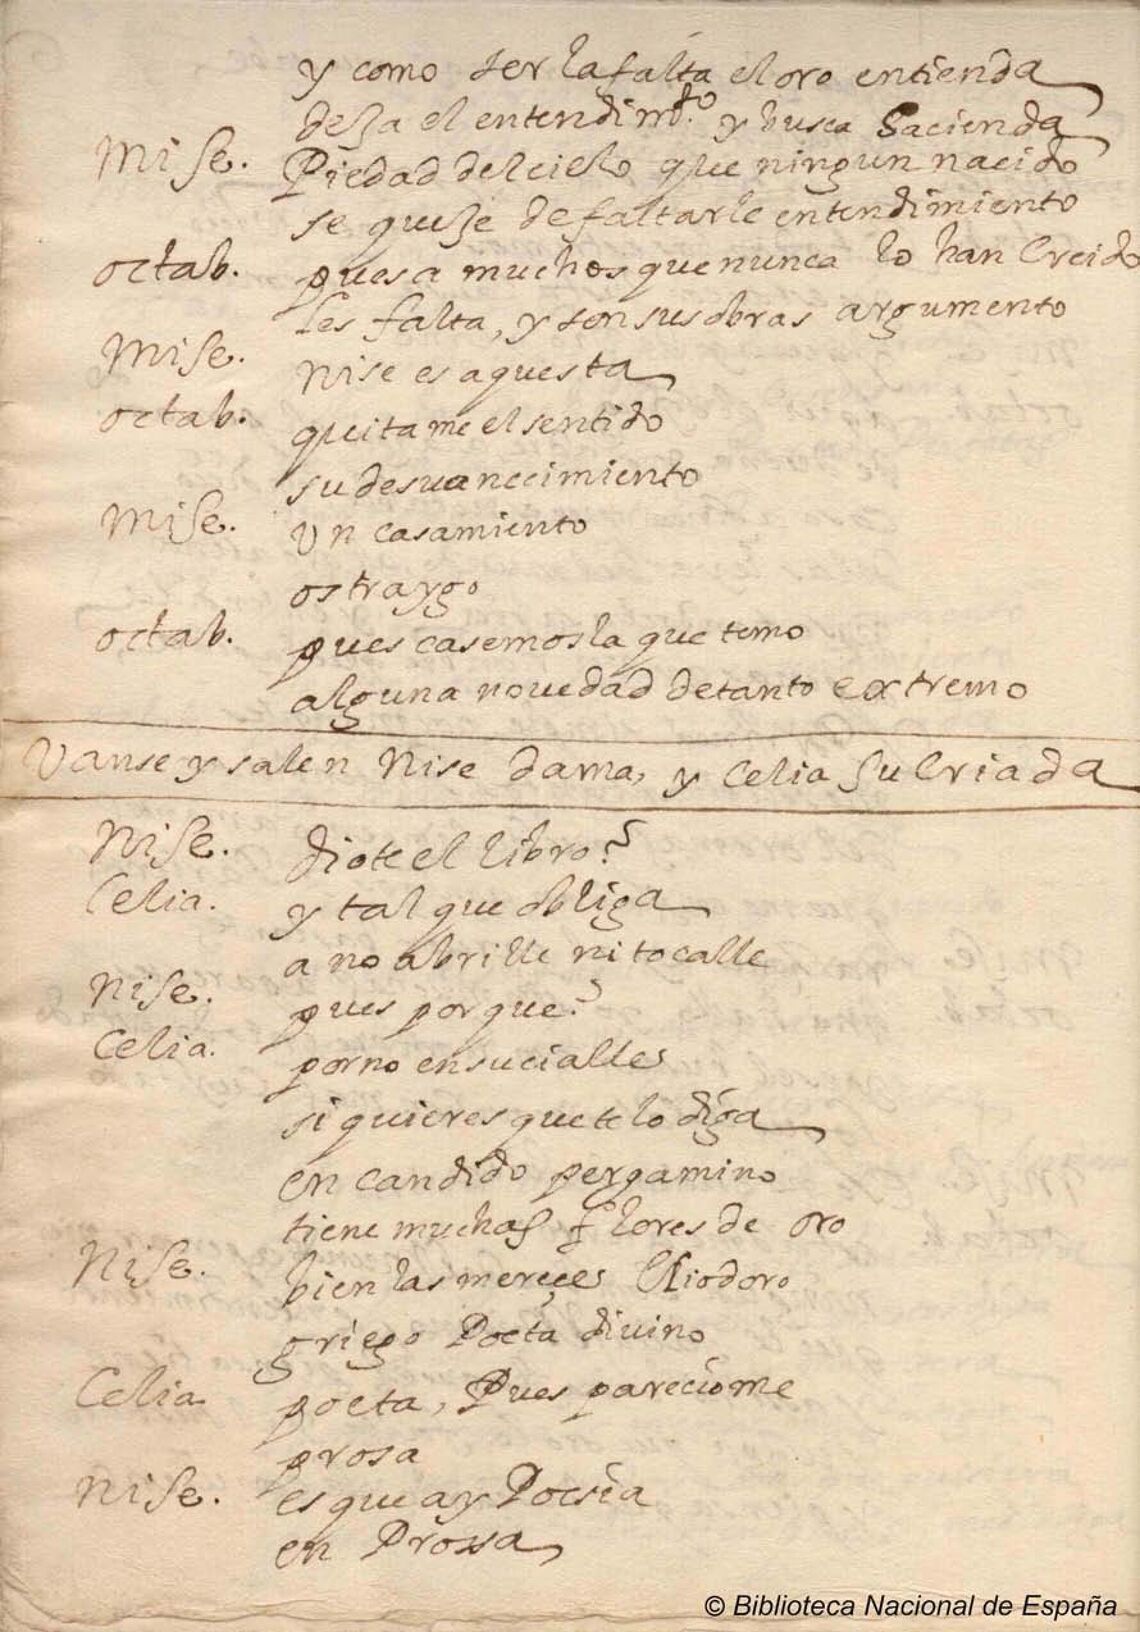 y como ser la falta el oro entienda
deja el entendim.to y busca hacienda
Mise. Piedad del cielo que ningun nacido
se queje de faltarle entendimiento
octab. pues a muchos que nunca lo han Creido
les falta, y son sus obras argumento
Mise. Nise es aquesta
octab. quitame el sentido
su desuanecimiento
Mise. Vn casamiento
os traygo
octab. pues casemosla que temo
alguna nouedad de tanto extremo
Vanse y salen Nise dama, y Celia su Criada
Nise. diote el libro?
Celia. y tal que obliga
a no abrille ni tocalle
Nise. pues por que?
Celia. por no ensucialles
si quieres que te lo diga
en candido pergamino
tiene muchas flores de oro
Nise. bien las mereçes Eliodoro
griego Poeta diuino
Celia. poeta, Pues pareciome
prosa
Nise. es que ay Poesia
en Prossa
© Biblioteca Nacional de España